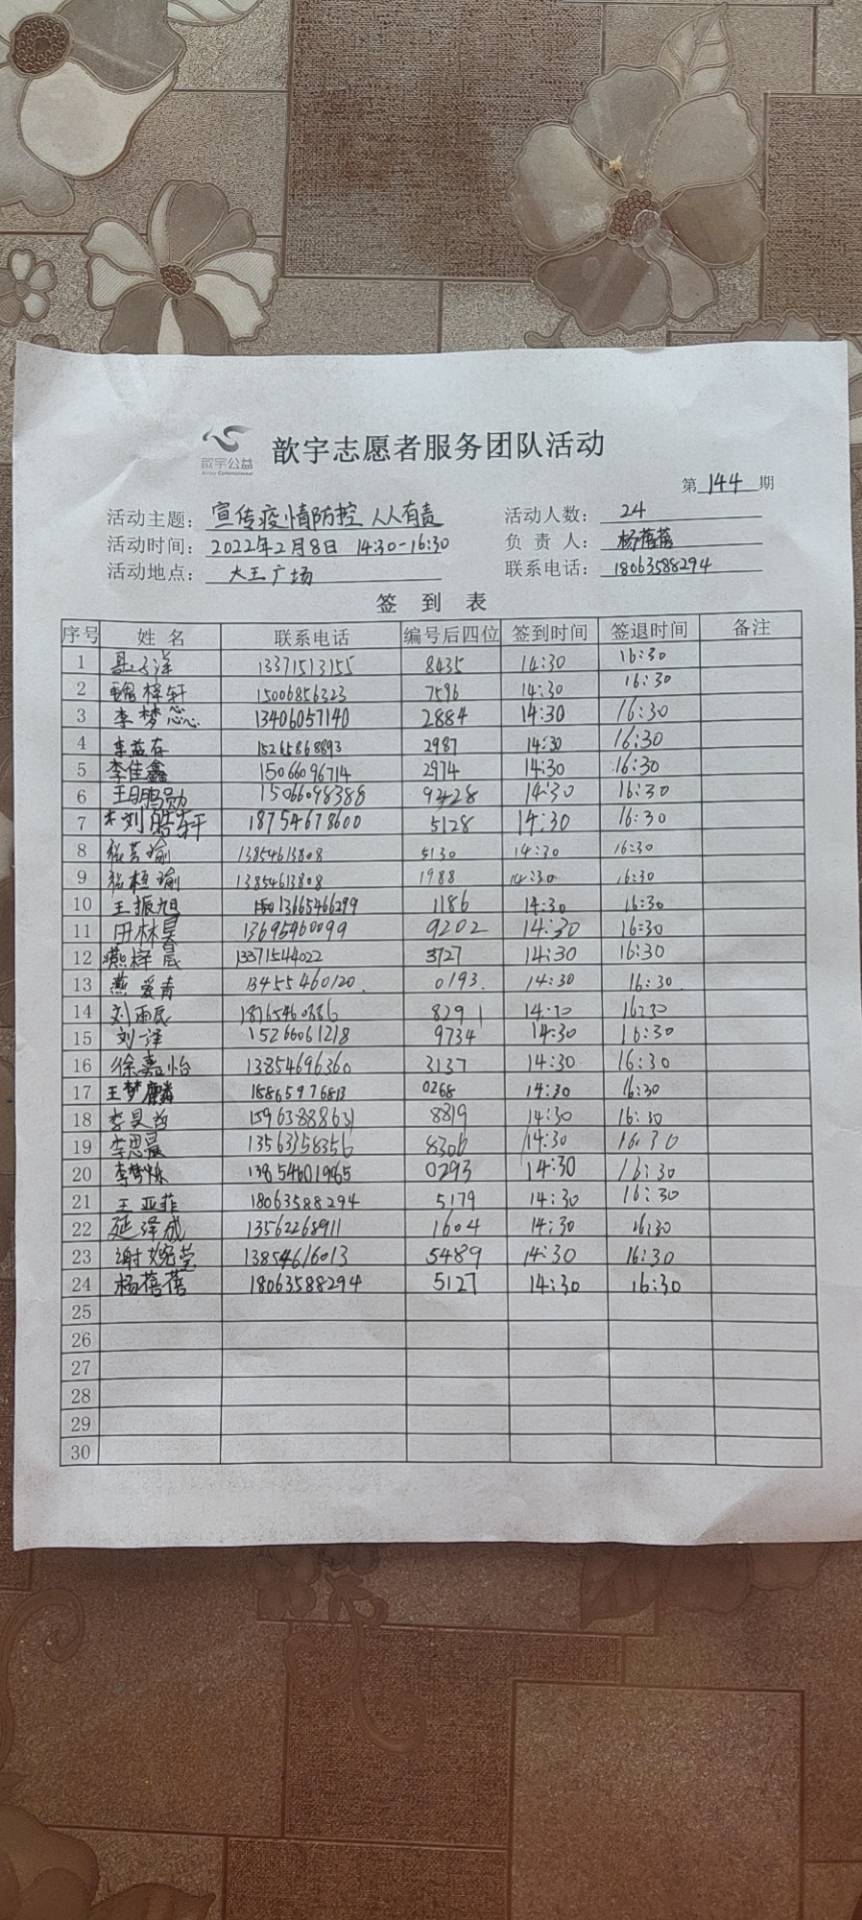 歆宇公益
歆宇志愿者服务团队活动
第 144 期
活动主题: 宣传疫情防控 人人有责 活动人数: 24
活动时间: 2022年2月8日 14:30-16:30 负责人: 杨蓓蓓
活动地点: 大王广场 联系电话: 18063588294
签到表
序号 姓名 联系电话 编号后四位 签到时间 签退时间 备注
1 13371513155 8435 14:30 16:30
2 梓轩 15006856323 7596 14:30 16:30
3 李梦 13406057140 2884 14:30 16:30
4 李益存 15265868893 2987 14:30 16:30
5 李佳鑫 15066096714 2974 14:30 16:30
6 15066098388 9428 14:30 16:30
7 刘皓轩 18754678600 5128 14:30 16:30
8 张 瑜 13854613808 5130 14:30 16:30
9 张桓瑜 13854613808 1988 14:30 16:30
10 王振旭 13665466299 1186 14:30 16:30
11 田林昊 13695460099 9202 14:30 16:30
12 燕梓晨 13371544022 3727 14:30 16:30
13 燕爱青 13455460120 0193 14:30 16:30
14 刘雨辰 8291 14:30 16:30
15 刘一泽 15266061218 9734 14:30 16:30
16 徐嘉怡 13854696360 3137 14:30 16:30
17 王梦麟 15865976813 0268 14:30 16:30
18 李昊 15963888631 8819 14:30 16:30
19 李思晨 13563158356 8306 14:30 16:30
20 李梦烁 13854601965 0293 14:30 16:30
21 王亚菲 18063588294 5179 14:30 16:30
22 延泽成 13562268911 1604 14:30 16:30
23 谢婉莹 13854616013 5489 14:30 16:30
24 杨蓓蓓 18063588294 5127 14:30 16:30
25
26
27
28
29
30